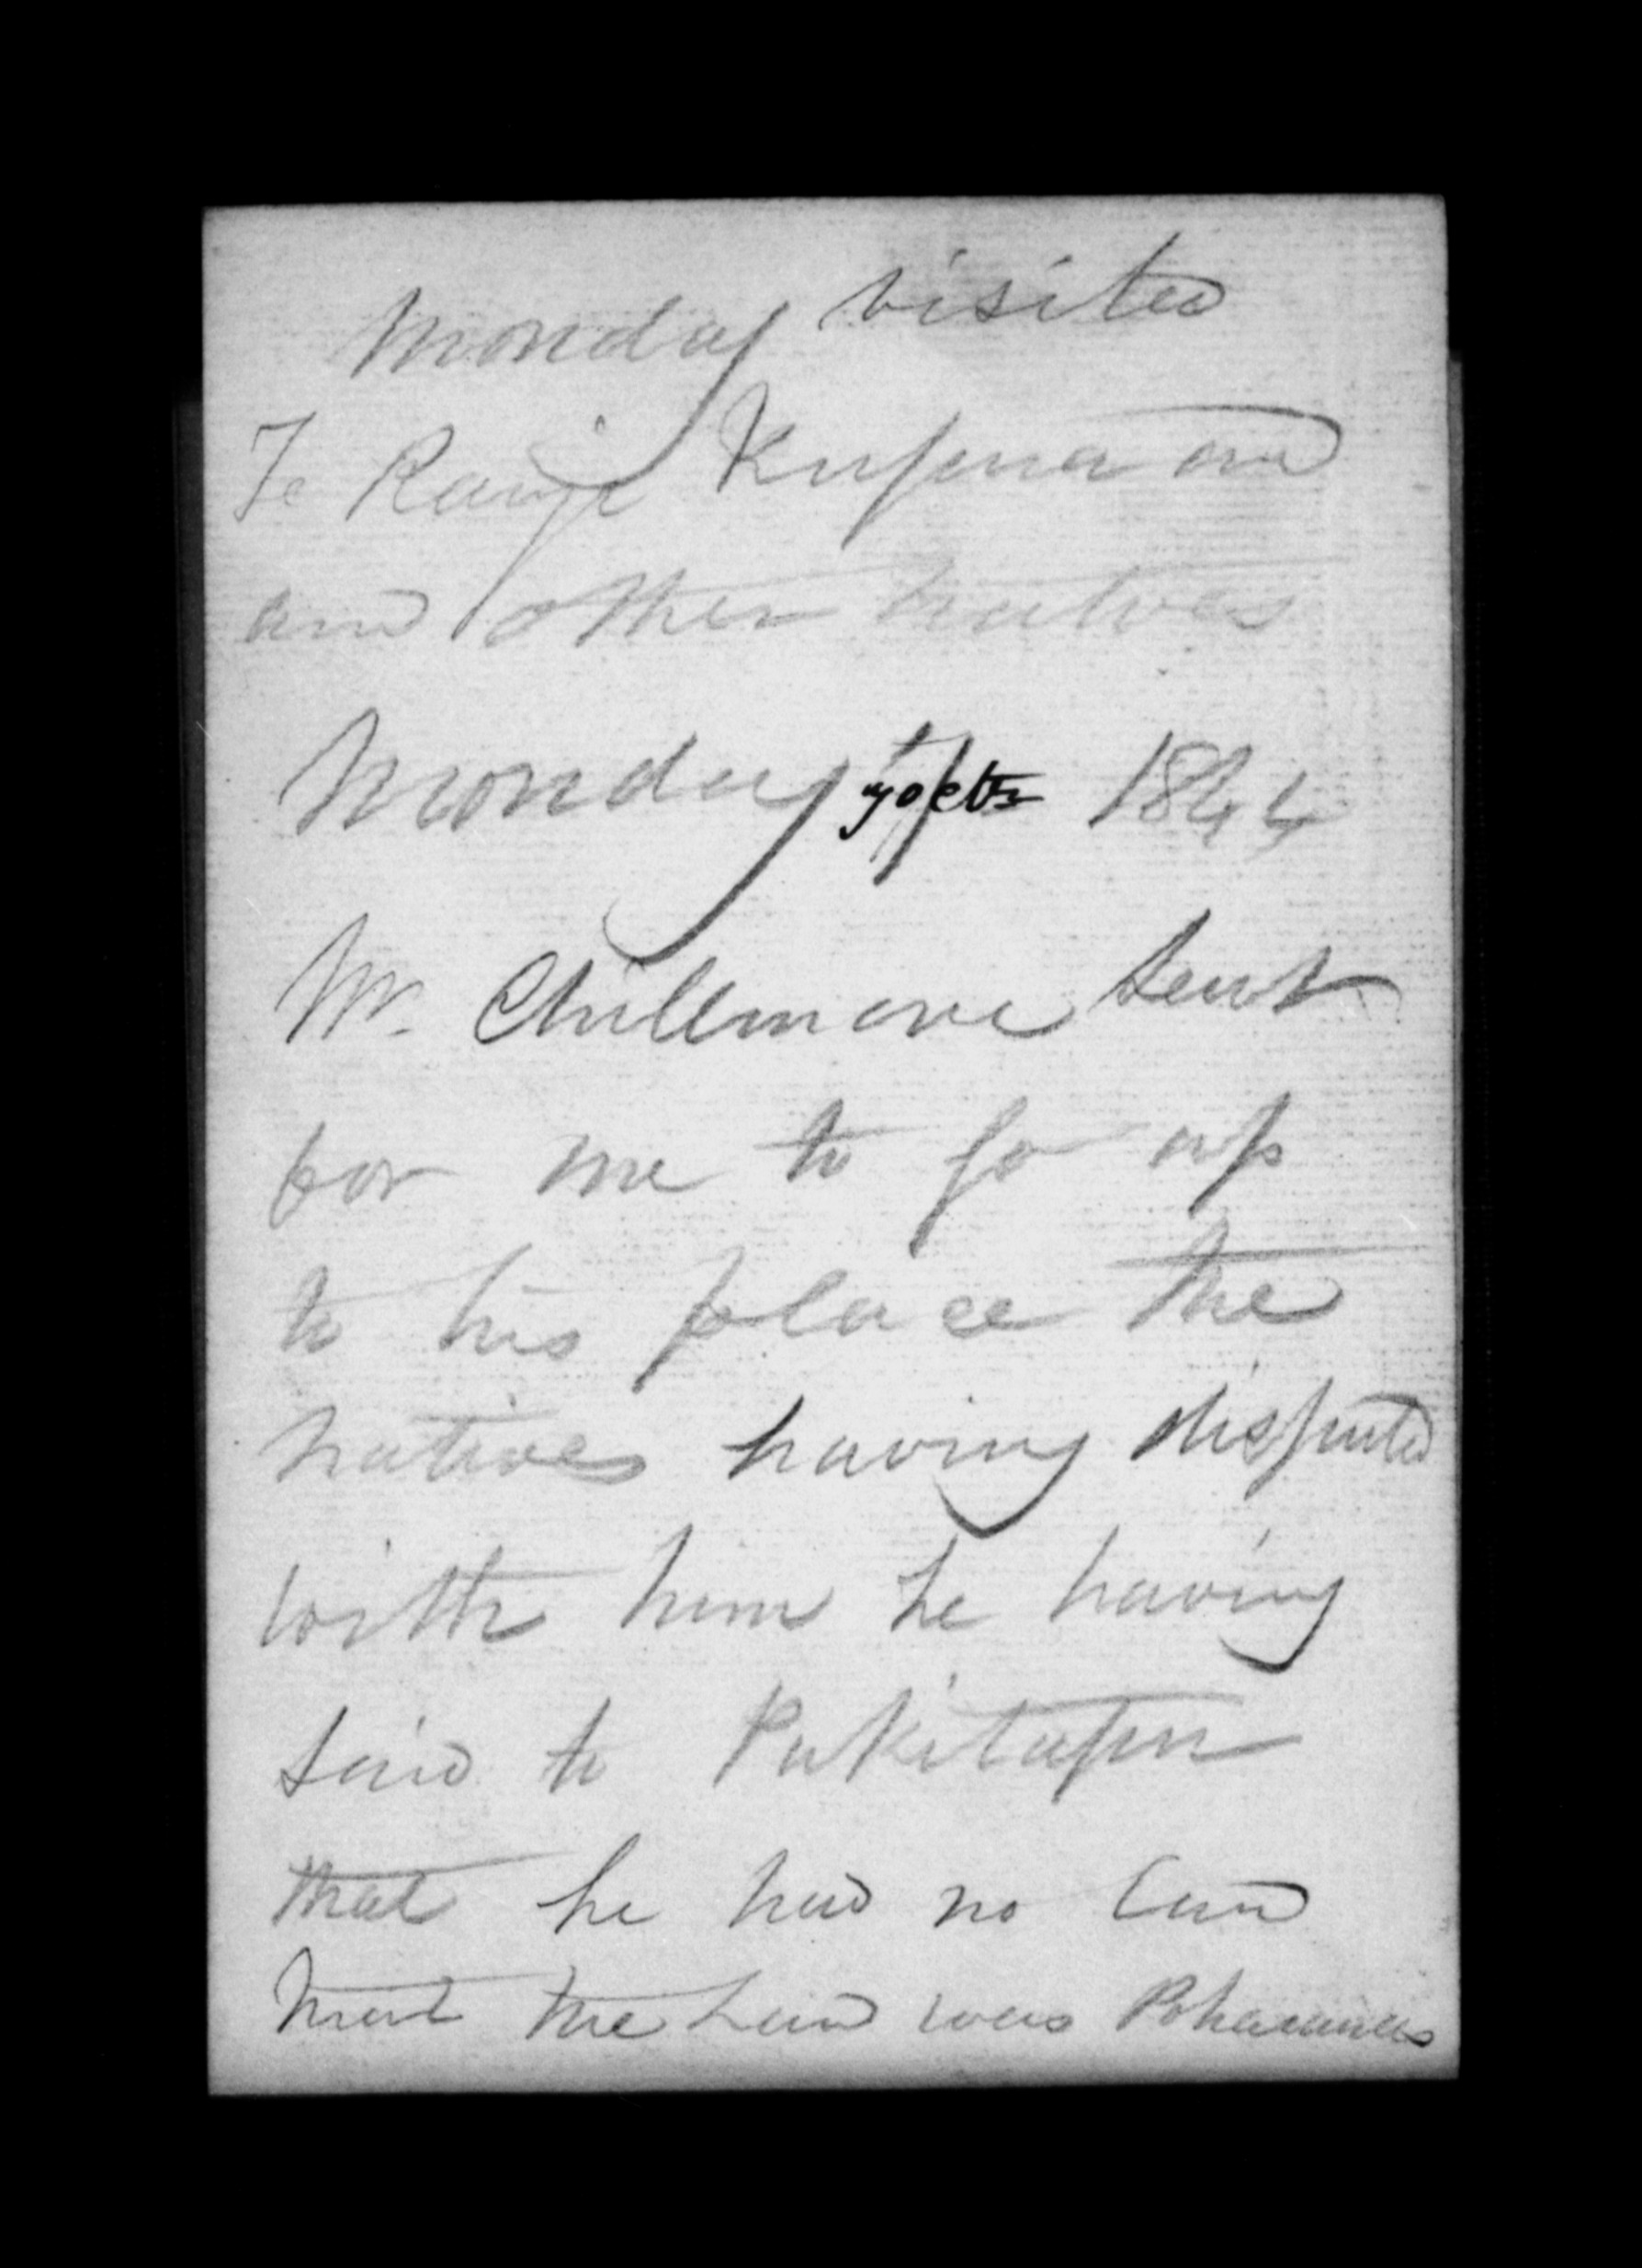 Monday visited
Te Rangi Kupua and
and other natives
Monday 1844
Mr. Chillmore sent
for me to go up
to his place the
natives having disputed
with him he having
said to Pukitapu
that he had no land
that the Land was